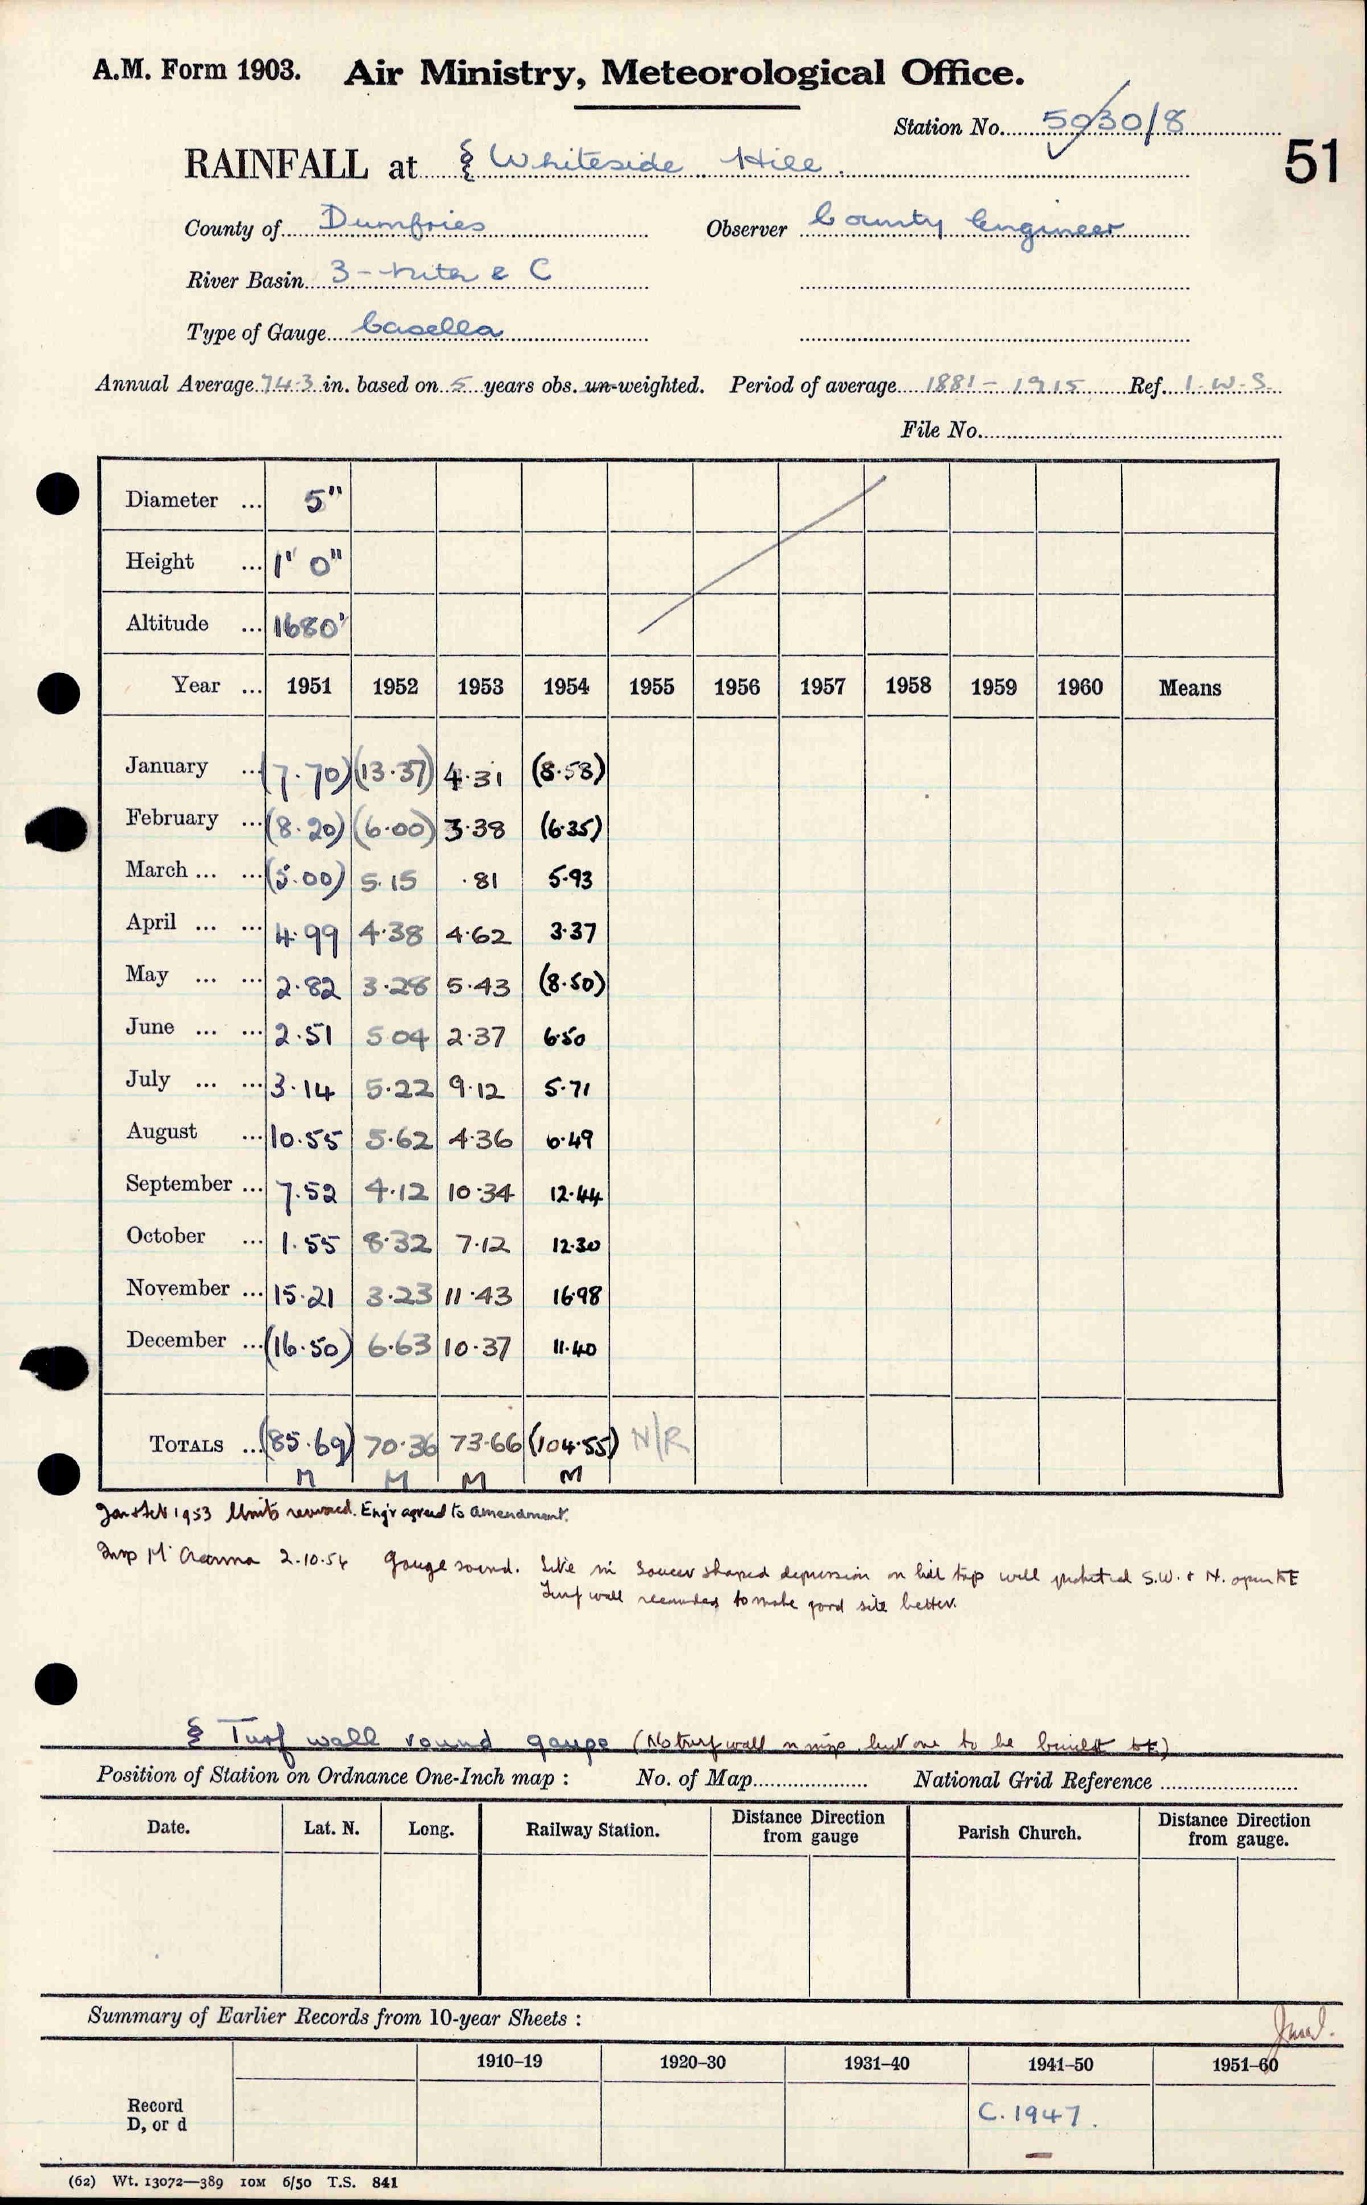 A.M. Form 1903. Air Ministry, Meteorological Office.
Station No. 5030/8
51
RAINFALL at § Whiteside Hill.
County of Dumfries Observer County Engineer
River Basin 3 - Nith & C
Type of Gauge Casella
Annual Average 74.3 in. based on 5 years obs. un-weighted. Period of average 1881 - 1915 Ref. I.W.S.
File No.
Diameter ... 5"
Height ... 1' 0"
Altitude ... 1680'
Year ... 1951 1952 1953 1954 1955 1956 1957 1958 1959 1960 Means
January ... (7.70) (13.37) 4.31 (8.58)
February ... (8.20) (6.00) 3.38 (6.35)
March ... ... (5.00) 5.15 .81 5.93
April ... ... 4.99 4.38 4.62 3.37
May ... ... 2.82 3.28 5.43 (8.50)
June ... ... 2.51 5 04 2.37 6.50
July ... ... 3.14 5.22 9.12 5.71
August ... 10.55 5.62 4.36 6.49
September ... 7.52 4.12 10.34 12.44
October ... 1.55 8.32 7.12 12.30
November ... 15.21 3.23 11.43 16.98
December ... (16.50) 6.63 10.37 11.40
TOTALS ... (85.69) 70.36 73.66 (104.55) N/R
M M M M
Jan & Feb 1953 Units revised. Engr agreed to amendment.
Insp 2.10.54 Gauge sound. Site in saucer shaped depression on hill top well protected S.W. & N. open to E
Turf wall recommended to make good site better.
§ Turf wall round gauge (No turf wall on insp. but one to be built)
Position of Station on Ordnance One-Inch map : No. of Map National Grid Reference
Date. Lat. N. Long. Railway Station. Distance Direction from gauge Parish Church. Distance Direction from gauge.
Summary of Earlier Records from 10-year Sheets :
1910-19 1920-30 1931-40 1941-50 1951-60
Record
D, or d C. 1947.
(62) Wt. 13072—389 10M 6/50 T.S. 841